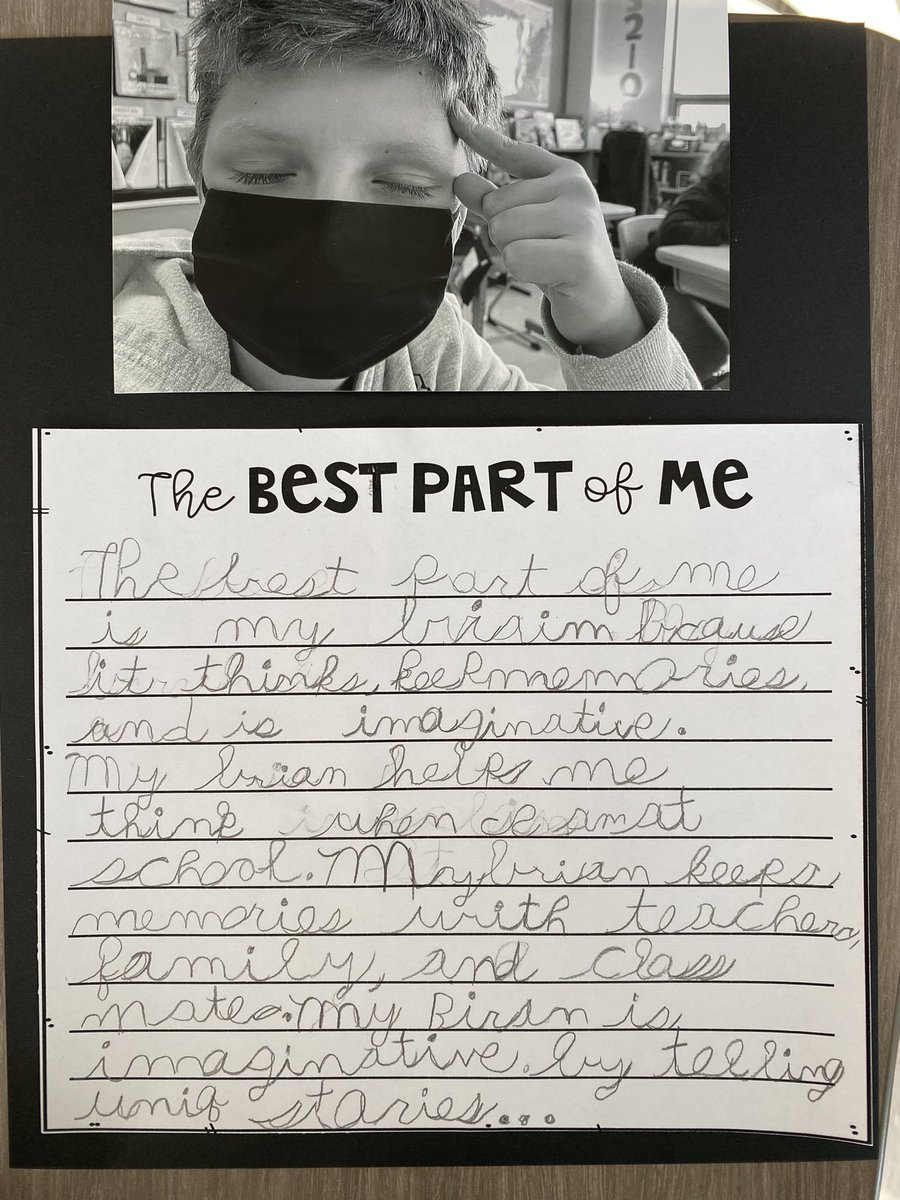 The BEST PART of ME
The best part of me
is my briaim because
it thinks, keep memories,
and is imaginative.
My brian helps me
think when I am at
school. My brian keeps
memories with teachers,
family, and class
mates. My Biran is
imaginative. by telling
uniq stories...